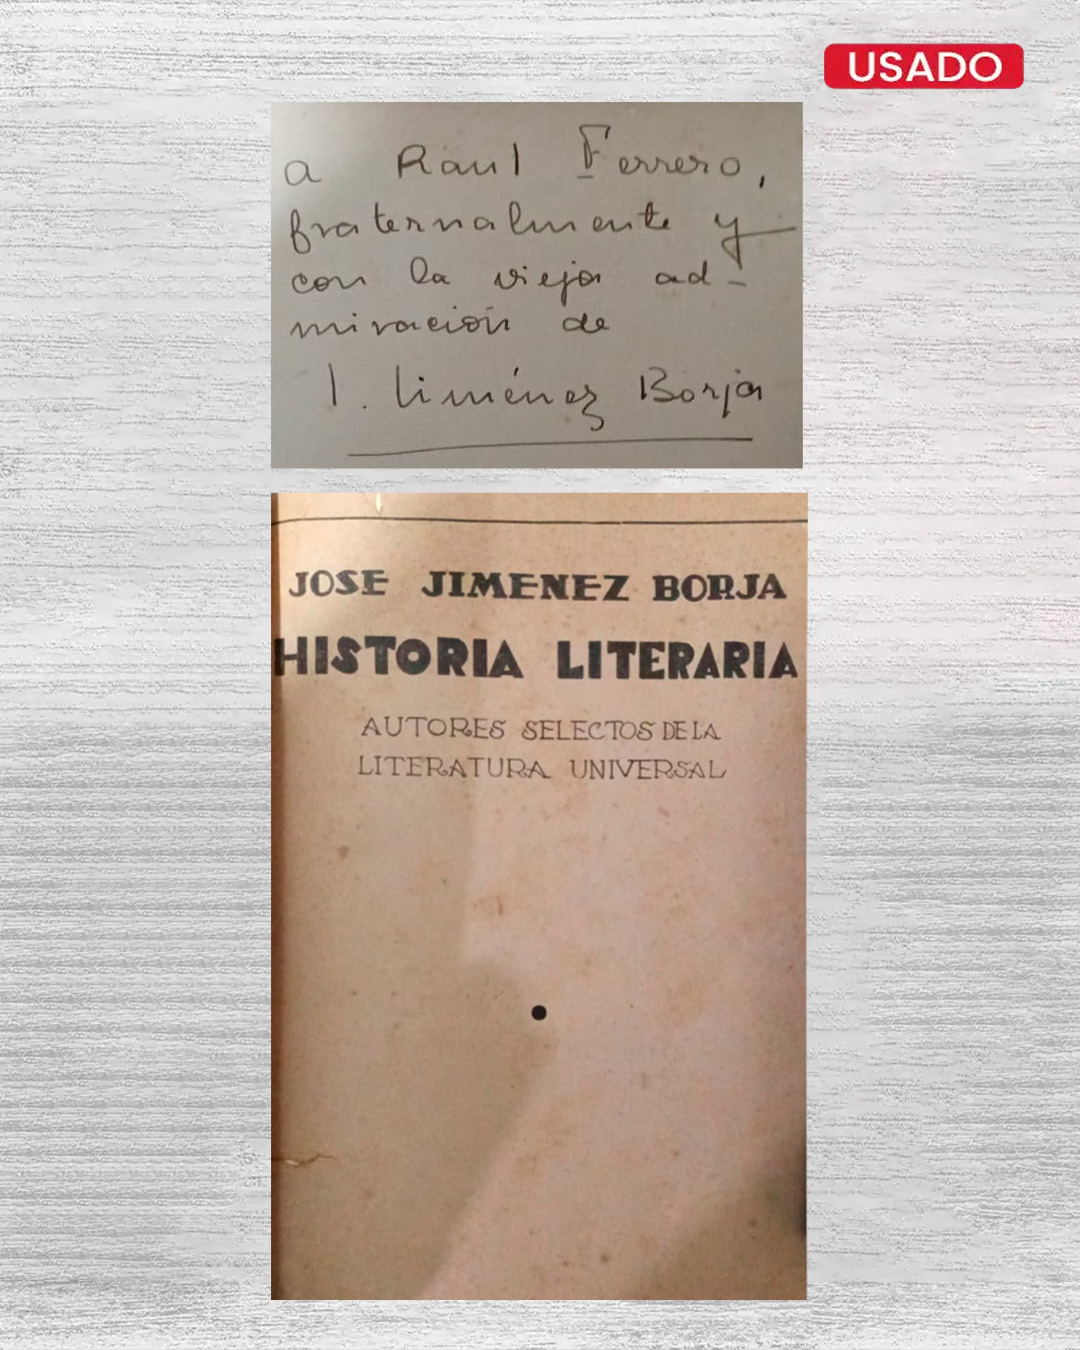 USADO
a Raul Ferrero,
fraternalmente y
con la vieja ad-
miración de
J. Jiménez Borja
JOSE JIMENEZ BORJA
HISTORIA LITERARIA
AUTORES SELECTOS DE LA
LITERATURA UNIVERSAL